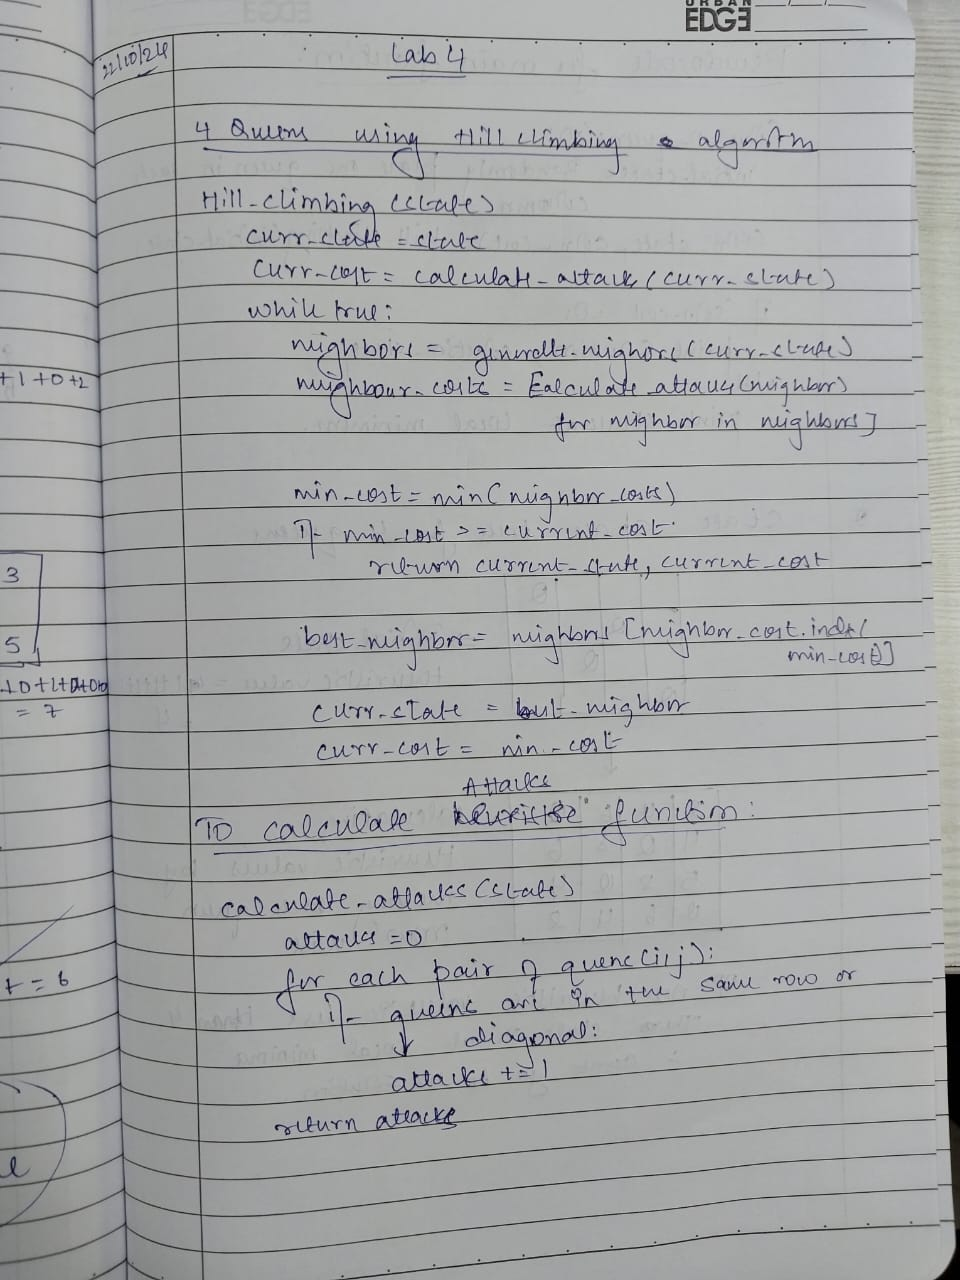 URBAN
EDGE
22/10/24
Lab 4
4 Queens using Hill climbing algorithm
Hill-climbing (state)
curr-state = state
curr-cost = calculate-attacks (curr-state)
while true:
neighbors = generate-neighors (curr-state)
neighbour-costs = [calculate-attacks(neighbor)
for neighbor in neighbors]
min-cost = min(neighbor-costs)
If min-cost >= current-cost:
return current-state, current-cost
best-neighbor = neighbors [neighbor-cost.index(
min-cost)]
curr-state = best-neighbor
curr-cost = min-cost
Attacks
To calculate heuristic function:
calculate-attacks (state)
attacks = 0
for each pair of queens (i,j):
If queens are in the same row or
↓ diagonal:
attacks += 1
return attacks
+1+0+2
3
5
= 7
= 6